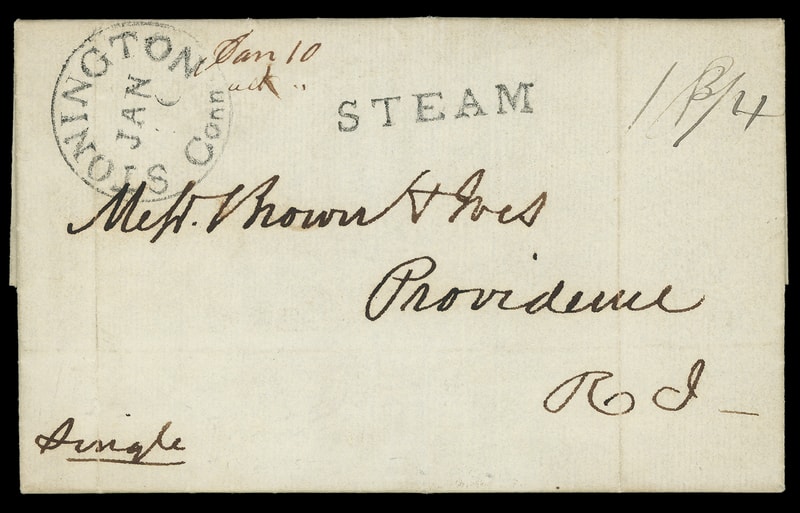 STONINGTON Conn
JAN
Jan 10
STEAM
18 3/4
Messrs. Brown & Ives
Providence
R I
Single